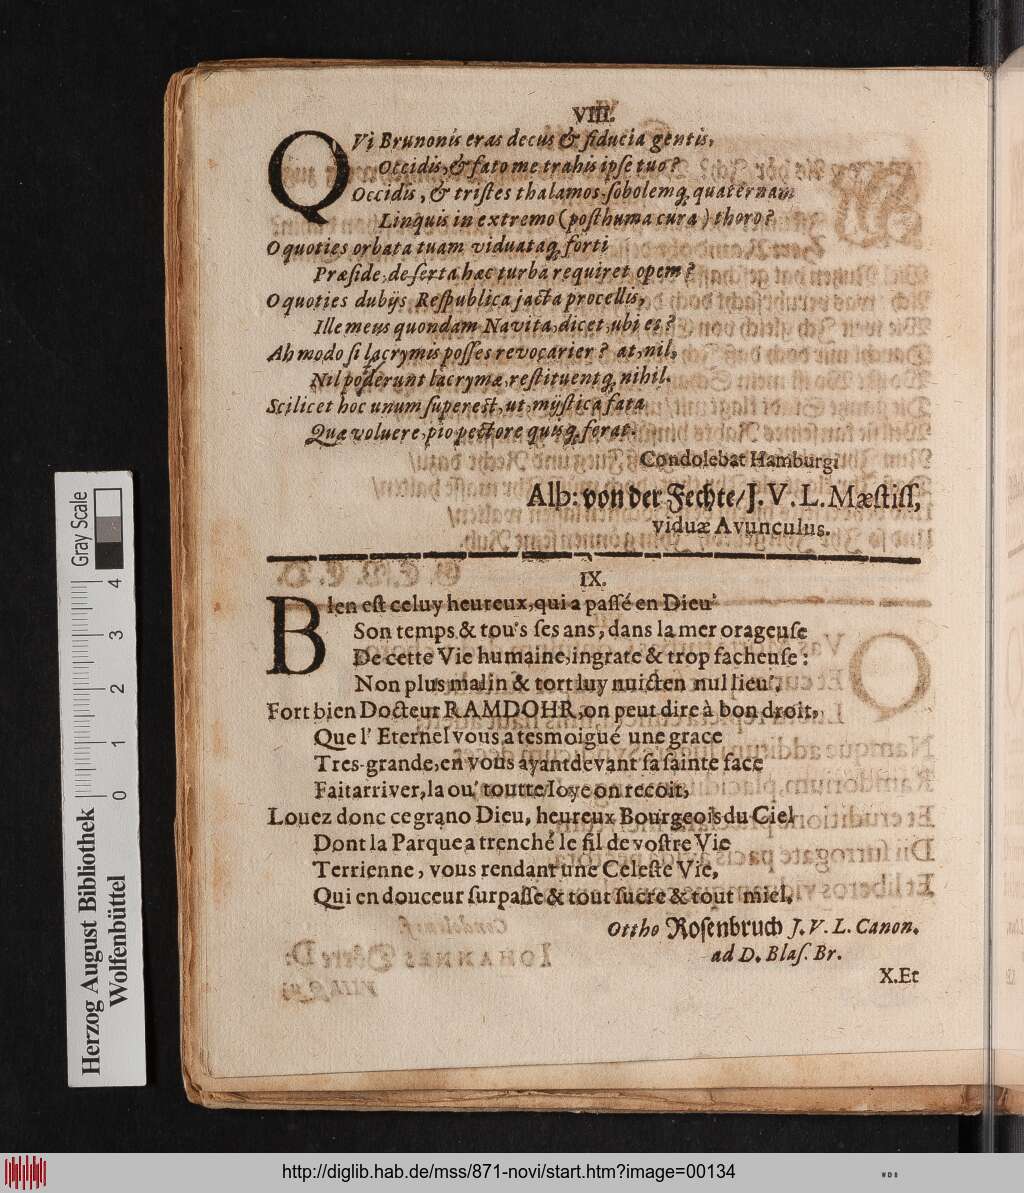 VIII.
QVi Brunonis eras decus & fiducia gentis,
Occidis, & fato me trahis ipse tuo?
Occidis, & tristes thalamos, sobolemq; quaternam
Linquis in extremo (posthuma cura) thoro?
O quoties orbata tuam viduataq; forti
Præside, deserta hæc turba requiret opem?
O quoties dubijs Respublica jacta procellis,
Ille meus quondam Navita, dicet, ubi es?
Ah modo si lacrymis posses revocarier? at, nil,
Nil poderunt lacrymæ, restituentq; nihil.
Scilicet hoc unum superest, ut, mystica fata
Quæ voluere, pio pectore quisq; ferat.
Condolebat Hamburgi
Alb: von der Fechte / J. V. L. Mæstiss,
viduæ Avunculus.
IX.
BIen est celuy heureux, qui a passé en Dieu'
Son temps & tou's ses ans, dans la mer orageuse
De cette Vie humaine, ingrate & trop facheuse:
Non plus malin & tort luy nuict en nul lieu',
Fort bien Docteur RAMDOHR, on peut dire à bon droit,
Que l' Eternel vous a tesmoigué une grace
Tres-grande, en vous ayant devant sa sainte face
Fait arriver, la ou' toutte Ioye on recoit,
Louez donc ce grano Dieu, heureux Bourgeois du Ciel
Dont la Parque a trenché le fil de vostre Vie
Terrienne, vous rendant une Celeste Vie,
Qui en douceur surpasse & tout sucre & tout miel,
Ottho Rosenbruch J. V. L. Canon.
ad D. Blas. Br.
X. Et
Gray Scale
0 1 2 3 4
Herzog August Bibliothek
Wolfenbüttel
http://diglib.hab.de/mss/871-novi/start.htm?image=00134
WDB